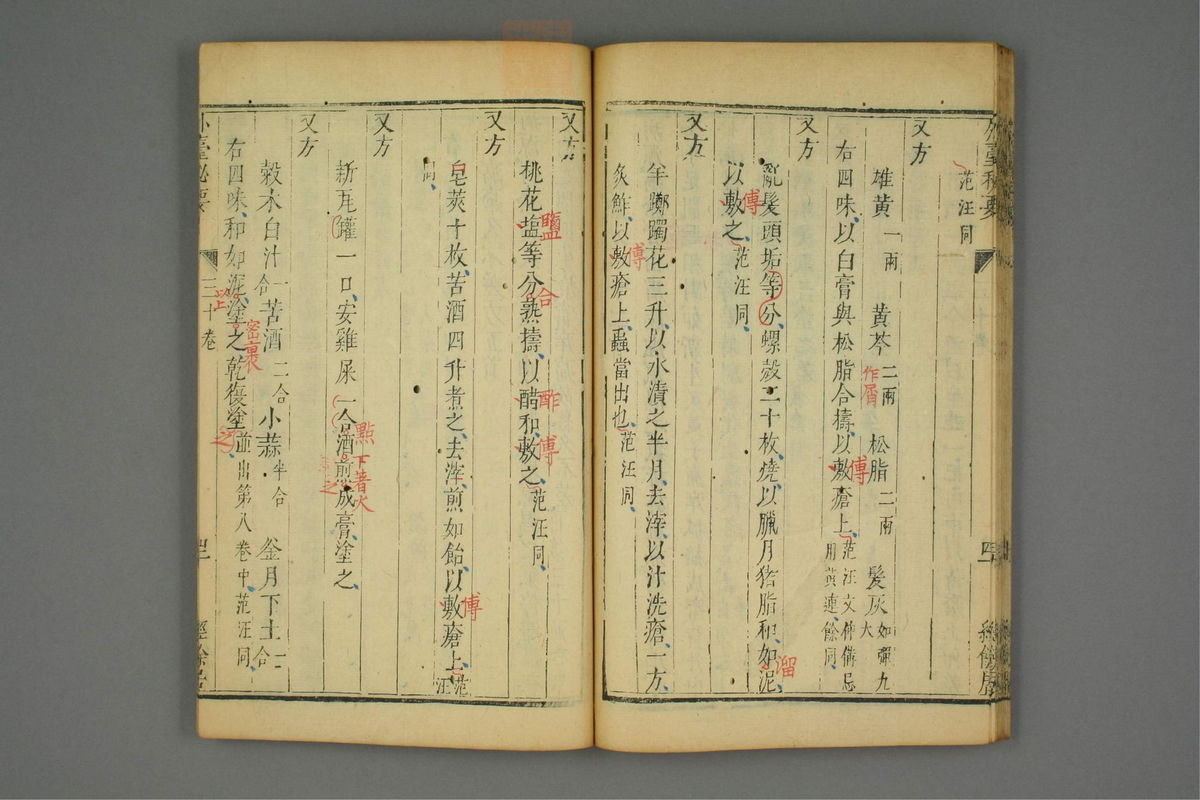 范汪同
又方
雄黃一兩 黃芩二兩 松脂二兩 髮灰如彈丸大
作屑
右四味以白膏與松脂合擣以敷瘡上范汪文仲備忌用黃連餘同
傅
又方
亂髮頭垢等分螺殼二十枚燒以臘月猪脂和如泥
溜
以敷之范汪同
傅
又方
羊躑躅花三升以水漬之半月去滓以汁洗瘡一方
炙鮓以敷瘡上蟲當出也范汪同
傅
四
經餘居
又方
桃花塩等分熟擣以醋和敷之范汪同
鹽 合 酢 傅
又方
皂莢十枚苦酒四升煮之去滓煎如飴以敷瘡上范汪
傅
同
又方
新瓦罐一口安雞屎一合酒煎成膏塗之
點 下著火
又方
穀木白汁一合 苦酒二合 小蒜半合 釜月下土一合
右四味和如泥塗之乾復塗並出第八卷中范汪同
以上 密裹 之
外臺秘要
三十卷